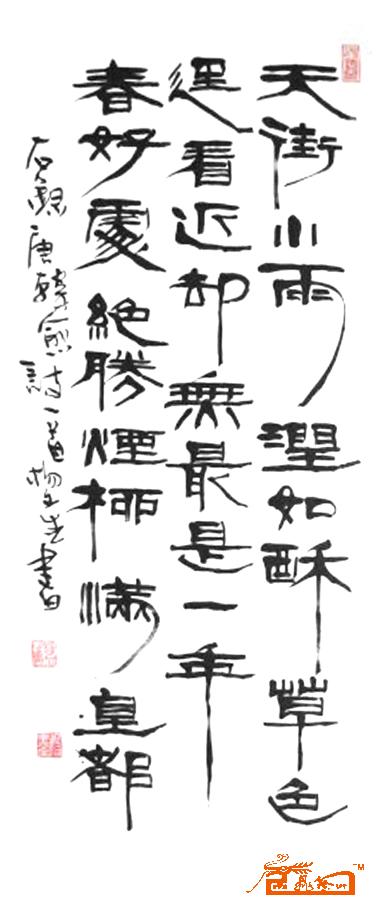 天街小雨潤如酥草色
遥看近却無最是一年
春好處絕勝煙柳滿皇都
右録唐韓愈詩一首生書